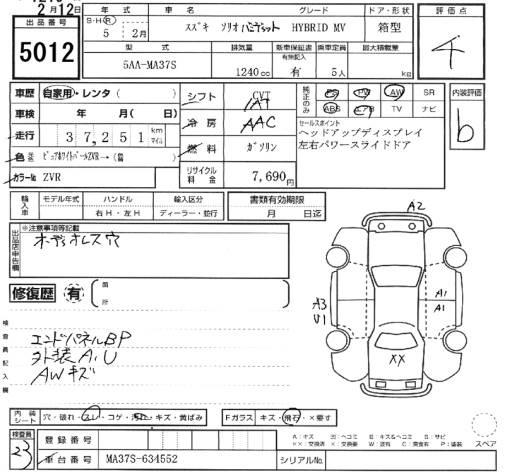 2月12日
出品番号
5012
年式 車名 グレード ドア・形状
S・H・R 5 2月 スズキ ソリオバンディット HYBRID MV 箱型
型式 排気量 新車保証書 有無記入 乗車定員 最大積載量
5AA-MA37S 1240cc 有 5人 kg
評価点
4
車歴 自家用・レンタ( )
車検 年 月 日
走行 37,251 km マイル
色 ピュアホワイトパールZVR→(
カラーNo. ZVR
シフト CVT IAT
冷房 AAC
燃料 ガソリン
リサイクル料金 7,690円
純正のみ PS PW AW SR
ABS エアB TV ナビ
セールスポイント
ヘッドアップディスプレイ
左右パワースライドドア
内装評価
b
輸入車 モデル年式 ハンドル 輸入区分
年 右H・左H ディーラー・並行
書類有効期限
月 日迄
出品店申告欄 ※注意事項等記載
オーディオレス穴
修復歴 有 箇所
検査員記入欄
エンドパネルBP
外装A.U
AWキズ
A2
A3
U1
A1
A1
XX
内装シート 穴・破れ・スレ・コゲ・汚れ・キズ・黄ばみ
Fガラス キズ・飛石・×要す
スペア
A:キズ U:ヘコミ B:キズ&ヘコミ S:サビ
XX:交換済 X:要交換 W:波有 C:腐食有 P:塗装
検査員
23
登録番号
車台番号 MA37S-634552
シリアルNo.